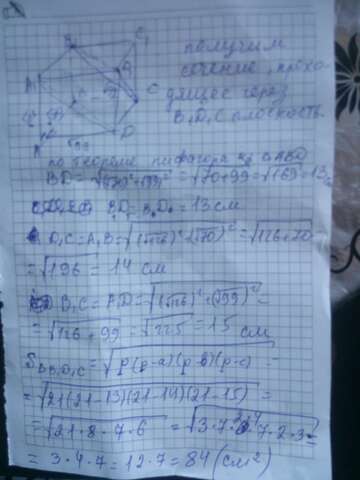 B₁
C₁
A₁
D₁
C
A
D
получим
сечение, прохо-
дящее через
B₁D₁C плоскость.
по теореме пифагора из BABD
BD = √(√70)²+(√99)² = √70+99 = √169 = 13см
B₁D₁ = 13см
D₁C = A₁B = √(√126)²+(√70)² = √126+70 =
= √196 = 14 см
B₁C = A₁D = √(√126)²+(√99)² =
= √126+99 = √225 = 15 см
S B₁D₁C = √p(p-a)(p-b)(p-c) =
= √21(21-13)(21-14)(21-15) =
= √21·8·7·6 =
= 3·4·7 = 12·7 = 84 (см²)